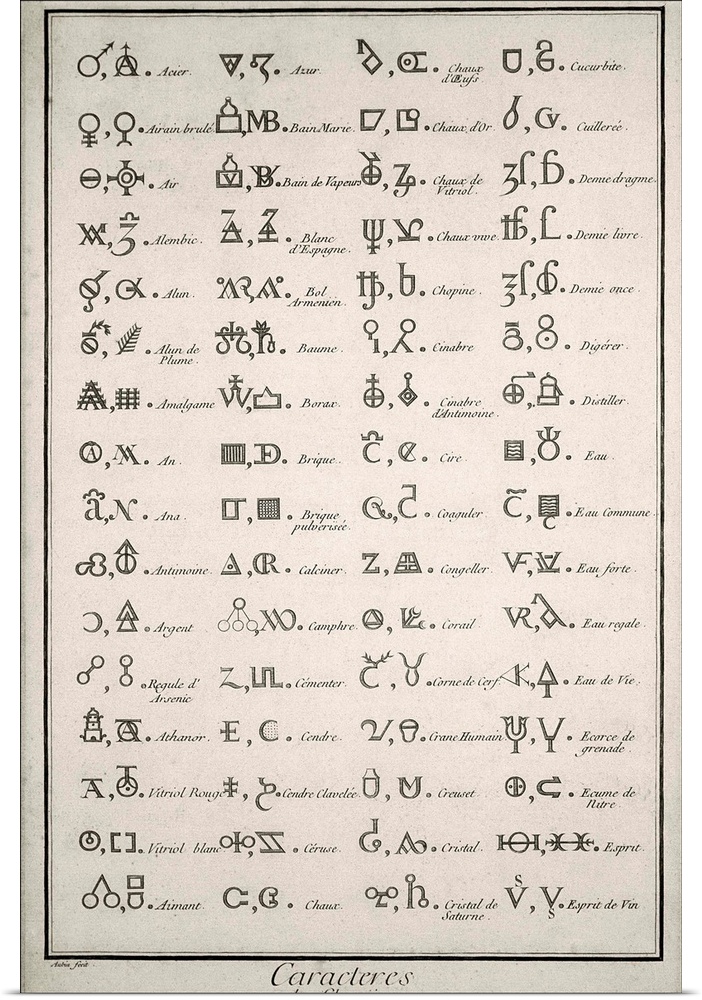 Acier.
Azur.
Chaux d'Œufs.
Cucurbite.
Airain brulé.
MB. Bain Marie.
Chaux d'Or.
Cuillerée.
Air
Bain de Vapeurs
Chaux de Vitriol.
Demie dragme.
Alembic.
Blanc d'Espagne.
Chaux vive.
Demie livre.
Alun.
Bol Armenien.
Chopine.
Demie once.
Alun de Plume.
Baume.
Cinabre
Digérer.
Amalgame
Borax.
Cinabre d'Antimoine.
Distiller.
An.
Brique.
Cire.
Eau.
Ana.
Brique pulverisée.
Coaguler.
Eau Commune.
Antimoine.
Calciner.
Congeller.
Eau forte.
Argent
Camphre.
Corail.
Eau regale.
Regule d'Arsenic
Cémenter.
Corne de Cerf.
Eau de Vie.
Athanor.
Cendre.
Crane Humain
Ecorce de grenade.
Vitriol Rouge
Cendre Clavelée
Creuset.
Ecume de Nitre.
Vitriol blanc.
Céruse.
Cristal.
Esprit.
Aimant.
Chaux.
Cristal de Saturne.
Esprit de Vin
Aubin fecit.
Caracteres